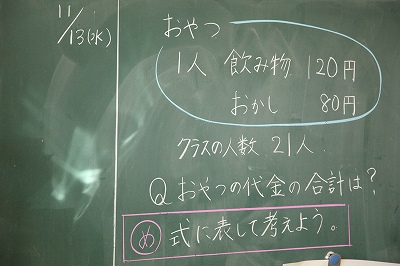 11/13(水)
おやつ
1人 飲み物 120円
おかし 80円
クラスの人数 21人
Q おやつの代金の合計は?
め 式に表して考えよう。